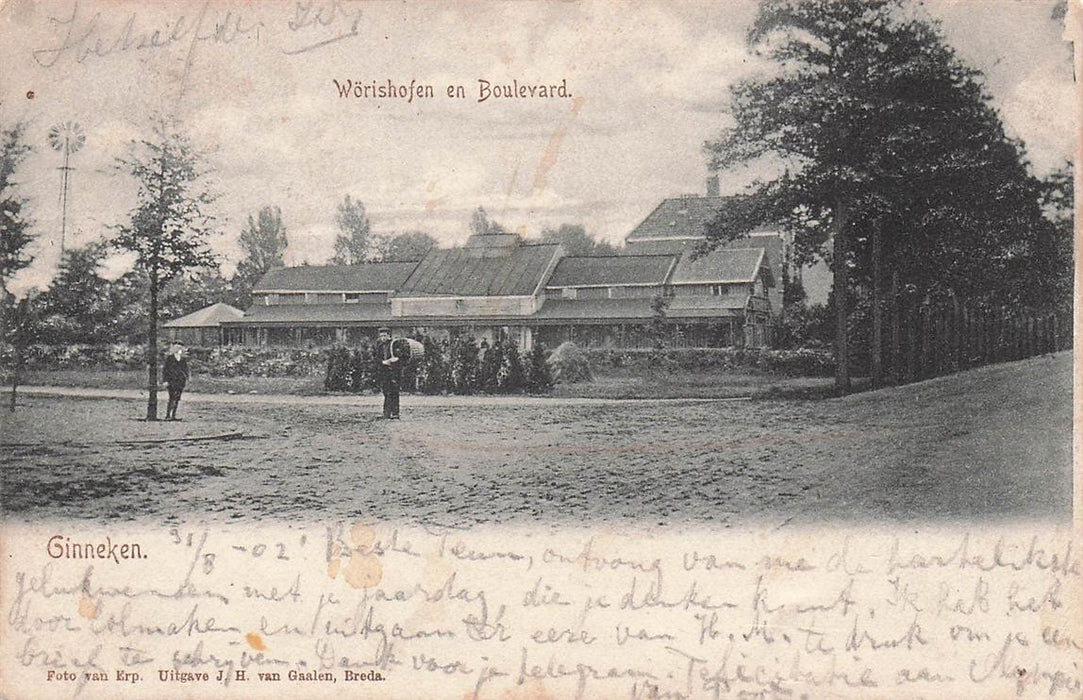 Wörishofen en Boulevard.
Ginneken.
31/8 -02. Beste Teun, ontvang van me de hartelikste
gelukwenschen met je jaardag, die je denken kunt. Ik heb het
door en uitgaan ter eere van H. M. te druk om je een
brief te schrijven. Dank voor je telegram. Felicitatie aan
Foto van Erp. Uitgave J. H. van Gaalen, Breda.
van